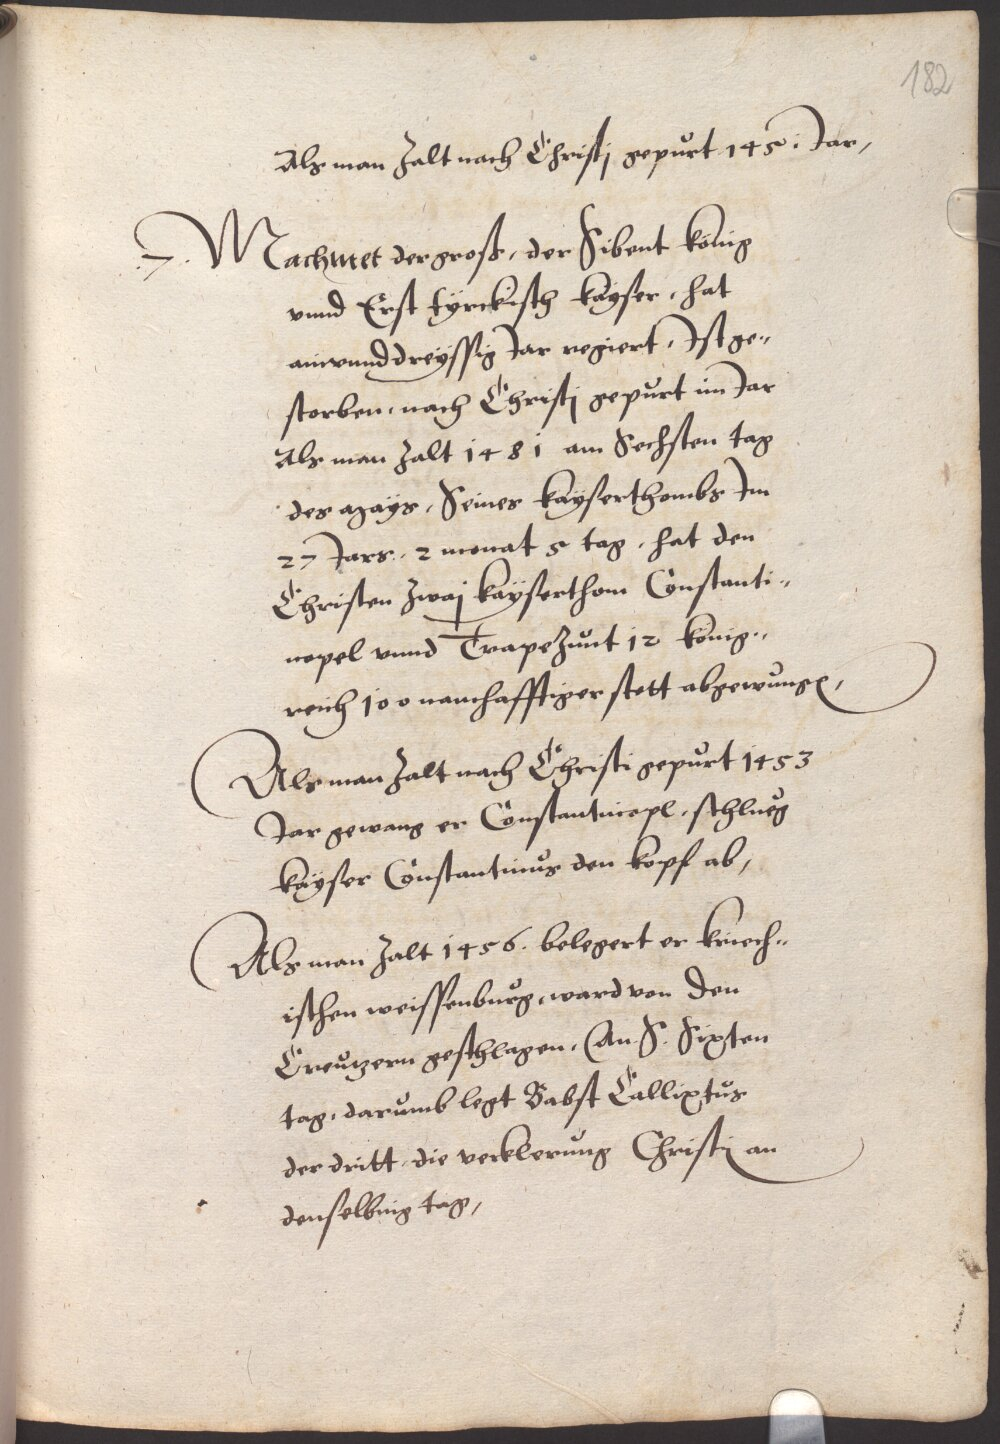 182
Als man Zalt nach Christj gepůrt 145i Jar,
.7. Machmet der groß, der Sibent könig
vnnd Erst tyrckisch kayser, hat
ainvnnddreyssig Jar regiert, Jst ge„
storben, nach Christj gepůrt im Jar
Als man Zalt 1481 am Sechsten tag
des Mays, Seines kayserthombs Jm
27 Jars, 2 monat 5 tag, hat den
Christen Zwaj kayserthom Constanti„
nopel vnnd TrapeZůnt 12 könig„
reich 100 namhafftiger stett abgewungen,
Als man Zalt nach Christi gepůrt 1453
Jar gewang er Constantinopl, schlueg
kayser Constantinůs den kopf ab,
Als man Zalt 1456. belegert er kriech„
ischen weissenbůrg, ward von den
Creützern geschlagen, An S. Sixten
tag, darumb legt Babst Callixtůs
der dritt, die verklerůng Christj an
denselbing tag,